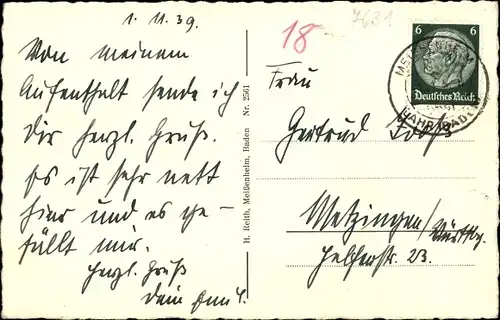 1. 11. 39.
Von meinem
Aufenthalt sende ich
Dir herzl. Gruß.
Es ist sehr nett
hier und es ge-
fällt mir.
Herzl. Gruß
Dein
H. Reith, Meißenheim, Baden Nr. 2561
18
7631
6 6
Deutsches Reich
LAHR (BADEN)
Frau
Gertrud
Metzingen / Württbg.
23.